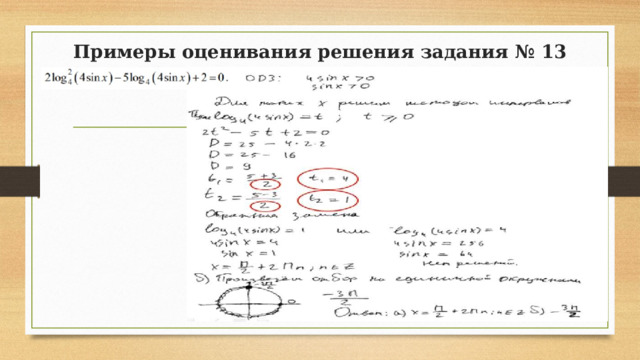 Примеры оценивания решения задания № 13
2log₄²(4sinx)−5log₄(4sinx)+2=0. ОДЗ: 4 sin x > 0
sin x > 0
Для таких x решим методом интервалов
log₄(4sinx) = t ; t ⩾ 0
2t² − 5t + 2 = 0
D = 25 − 4·2·2
D = 25 − 16
D = 9
t₁ = (5+3)/2 t₁ = 4
t₂ = (5−3)/2 t₂ = 1
Обратная замена
log₄(4sinx) = 1 или log₄(4sinx) = 4
4sinx = 4 4sinx = 256
sin x = 1 sin x = 64
x = П/2 + 2Пn; n∈Z Нет решений.
б) Произведём отбор на единичной окружности
−3П/2
0
−3П/2
Ответ: а) x = П/2 + 2Пn; n∈Z б) −3П/2